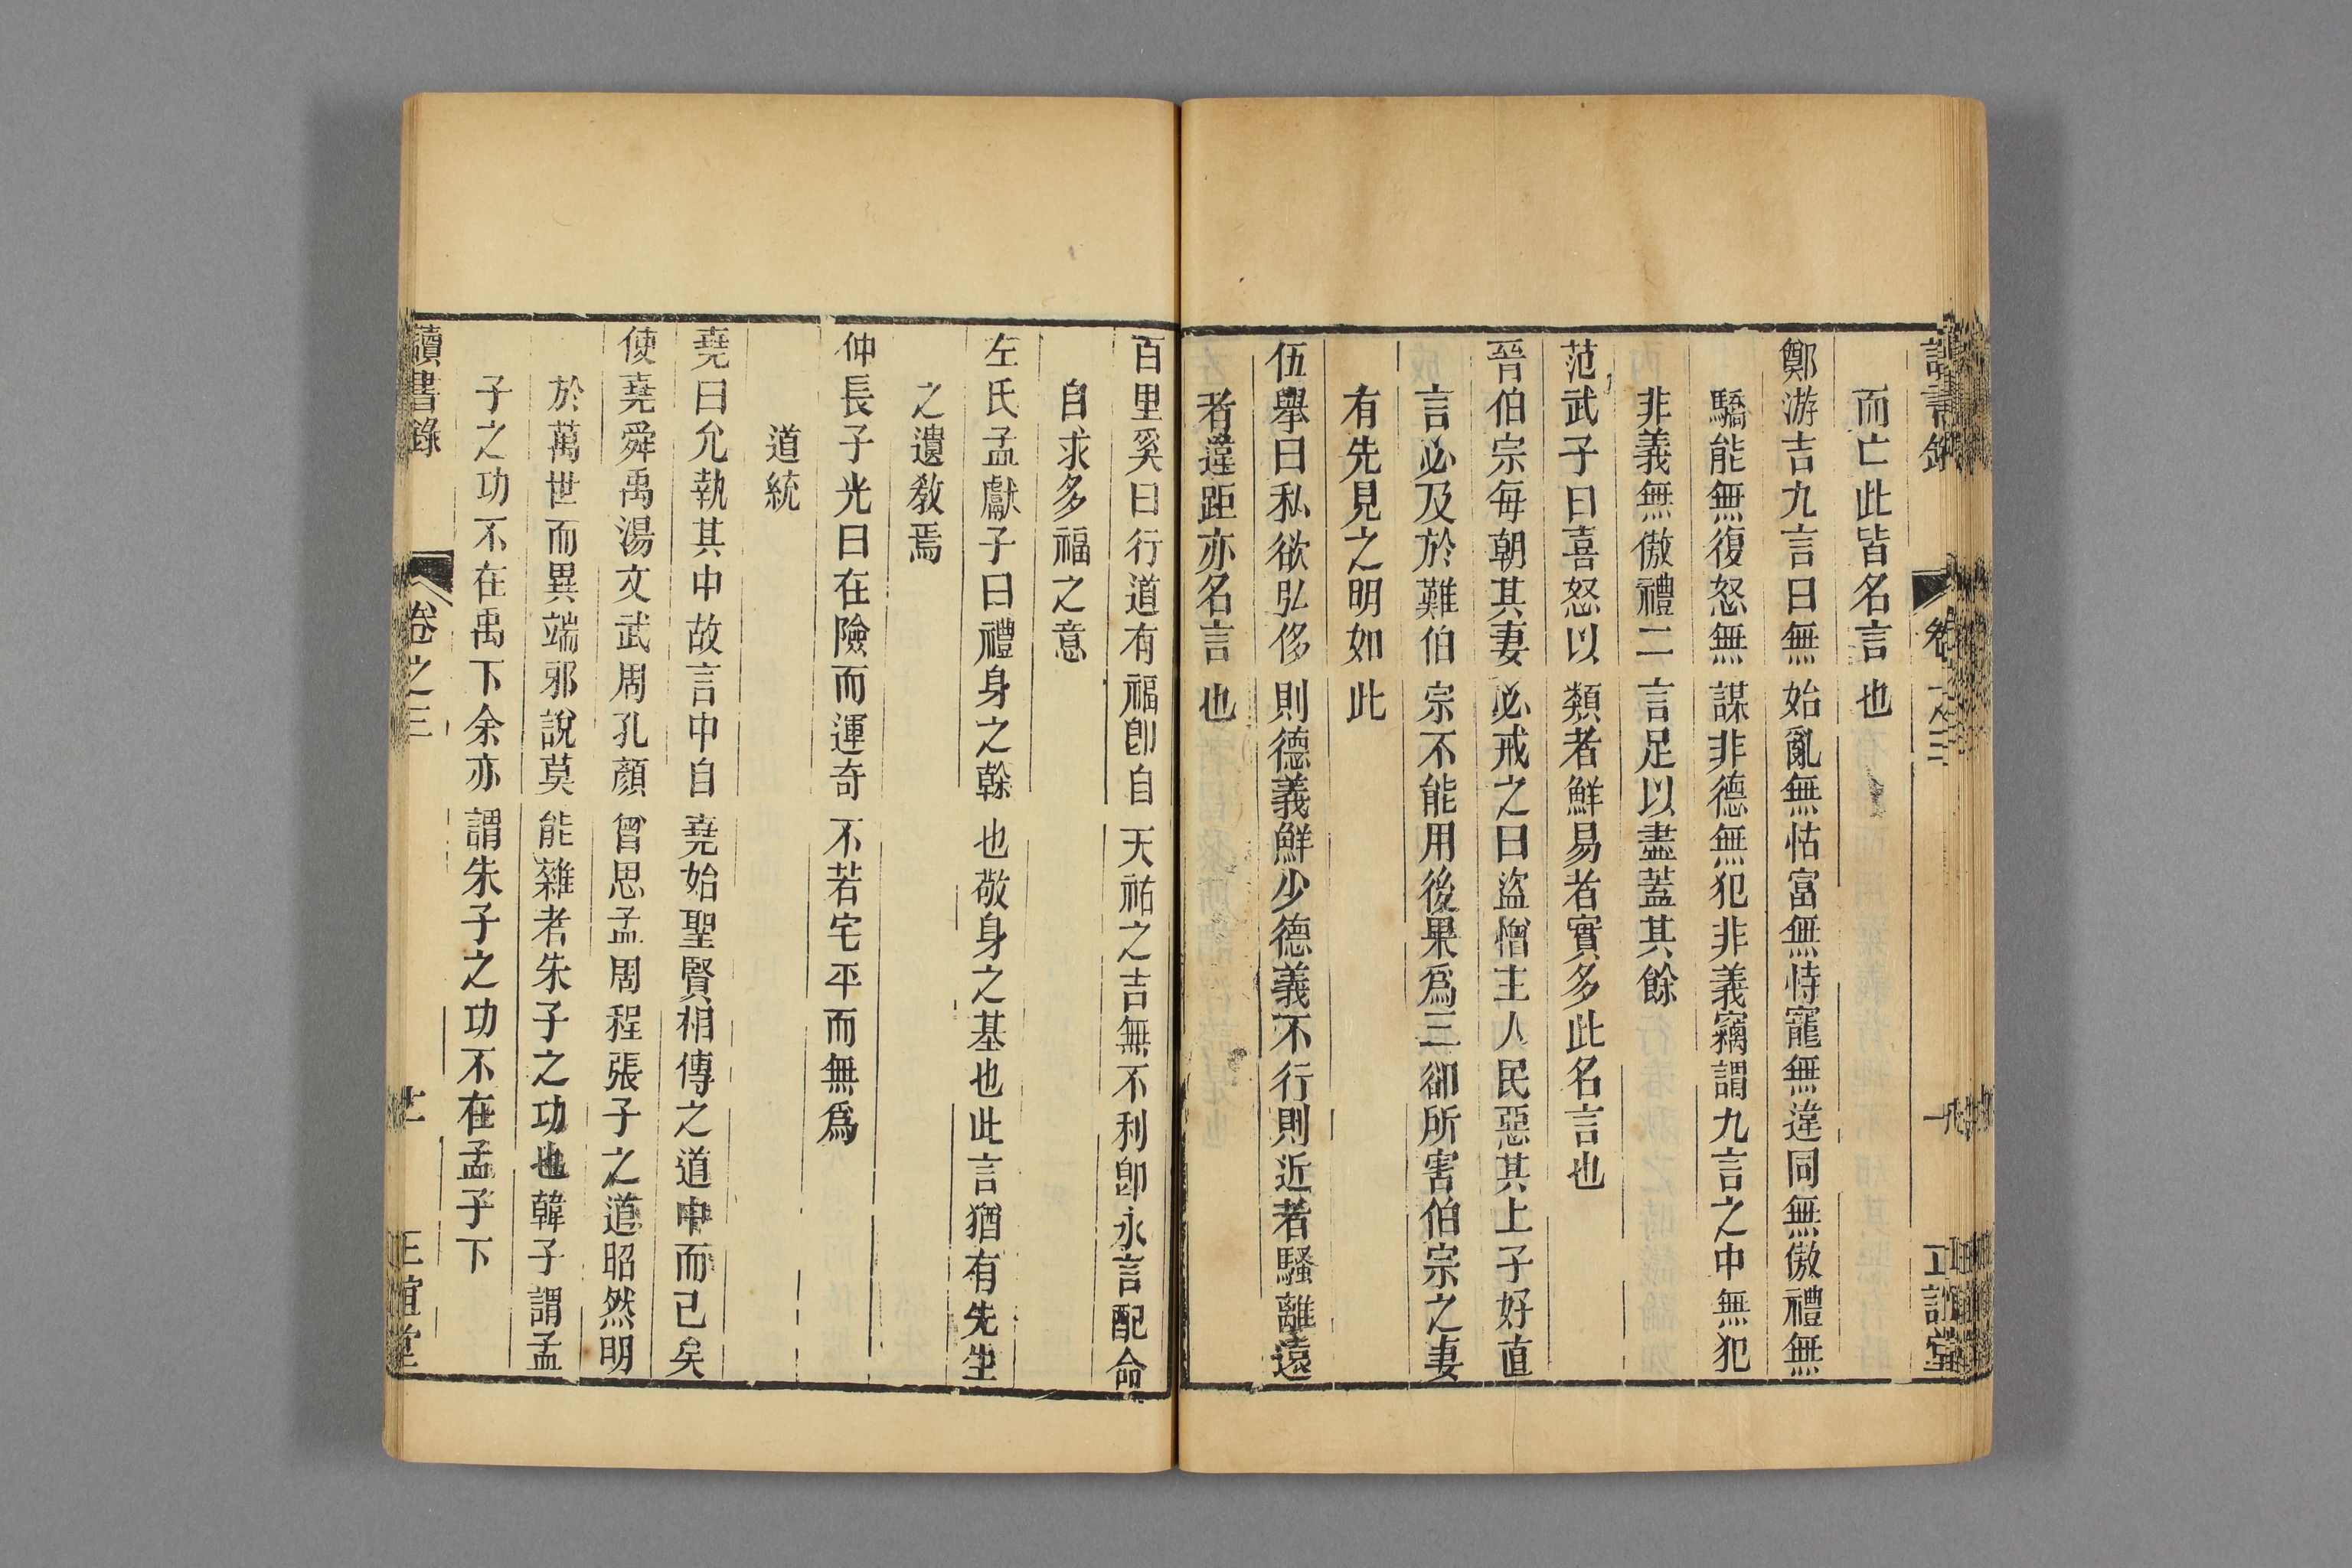 而亡此皆名言也
鄭游吉九言曰無始亂無怙富無恃寵無違同無傲禮無
驕能無復怒無謀非德無犯非義竊謂九言之中無犯
非義無傲禮二言足以盡蓋其餘
范武子曰喜怒以類者鮮易者實多此名言也
晉伯宗每朝其妻必戒之曰盜憎主人民惡其上子好直
言必及於難伯宗不能用後果爲三郤所害伯宗之妻
有先見之明如此
伍舉曰私欲弘侈則德義鮮少德義不行則近者騷離遠
者違距亦名言也
百里奚曰行道有福卽自天祐之吉無不利卽永言配命
自求多福之意
左氏孟獻子曰禮身之榦也敬身之基也此言猶有先生
之遺敎焉
仲長子光曰在險而運奇不若宅平而無爲
道統
堯曰允執其中故言中自堯始聖賢相傳之道中而已矣
使堯舜禹湯文武周孔顏曾思孟周程張子之道昭然明
於萬世而異端邪說莫能雜者朱子之功也韓子謂孟
子之功不在禹下余亦謂朱子之功不在孟子下
讀書錄 卷之三 正誼堂